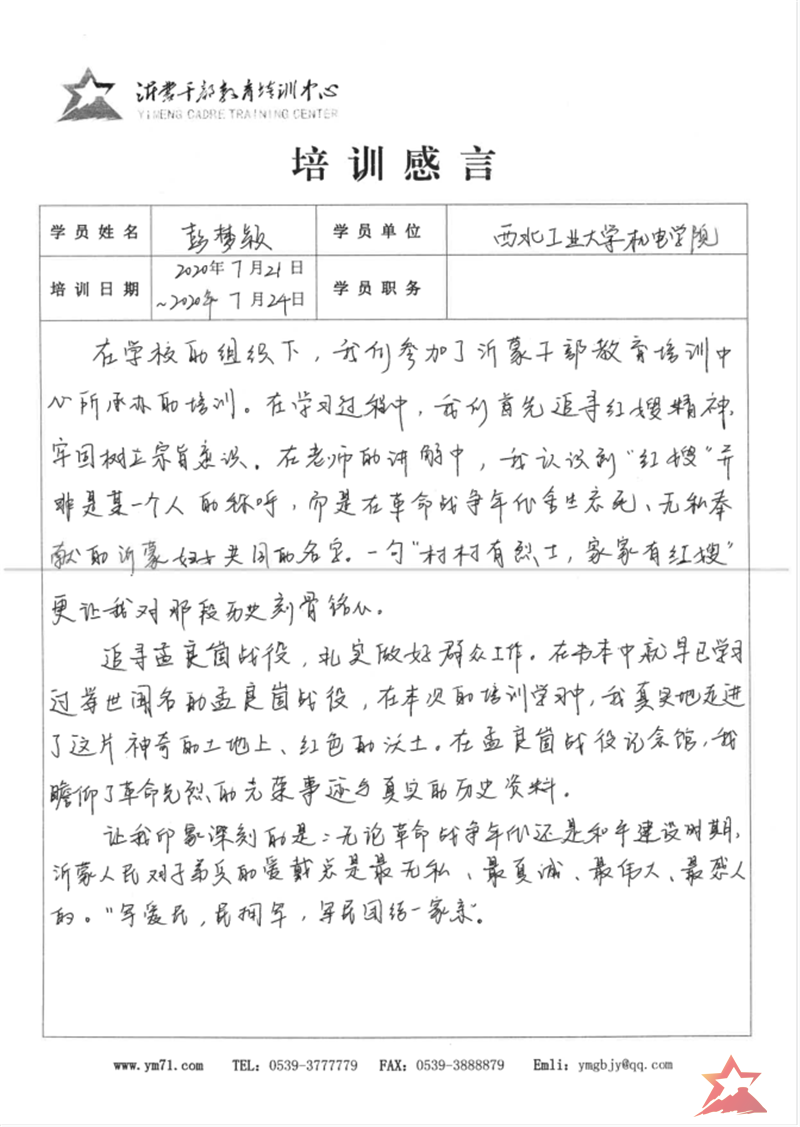 沂蒙干部教育培训中心
YIMENG CADRE TRAINING CENTER
培训感言
学员姓名 彭梦颖 学员单位 西北工业大学机电学院
培训日期 2020年7月21日 ~2020年7月24日 学员职务
在学校的组织下，我们参加了沂蒙干部教育培训中
心所承办的培训。在学习过程中，我们首先追寻红嫂精神，
牢固树立宗旨意识。在老师的讲解中，我认识到“红嫂”并
非是某一个人的称呼，而是在革命战争年代舍生忘死、无私奉
献的沂蒙妇女共同的名字。一句“村村有烈士，家家有红嫂”
更让我对那段历史刻骨铭心。
追寻孟良崮战役，扎实做好群众工作。在书本中就早已学习
过举世闻名的孟良崮战役，在本次的培训学习中，我真实地走进
了这片神奇的土地上、红色的沃土。在孟良崮战役纪念馆，我
瞻仰了革命先烈的光荣事迹与真实的历史资料。
让我印象深刻的是：无论革命战争年代还是和平建设时期，
沂蒙人民对子弟兵的爱戴总是最无私、最真诚、最伟大、最感人
的。“军爱民，民拥军，军民团结一家亲”。
www.ym71.com TEL：0539-3777779 FAX：0539-3888879 Emli：ymgbjy@qq.com